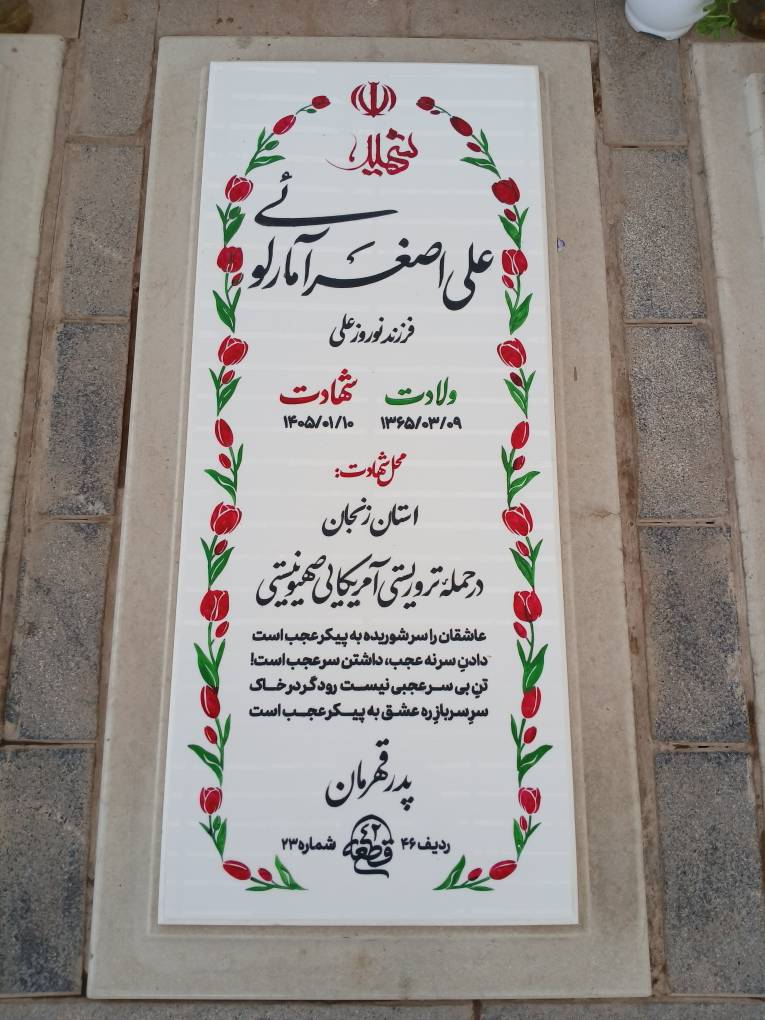 شهید
علی اصغر آمارلوئی
فرزند نوروزعلی
ولادت شهادت
۱۳۶۵/۰۳/۰۹ ۱۴۰۵/۰۱/۱۰
محل شهادت:
استان زنجان
در حملۀ تروریستی آمریکایی صهیونیستی
عاشقان را سر شوریده به پیکر عجب است
دادنِ سر نه عجب، داشتن سر عجب است!
تنِ بی سر عجبی نیست رود گر در خاک
سرِ سرباز ره عشق به پیکر عجب است
پدر قهرمان
ردیف ۴۶ قطعه ۴۲ شماره ۲۳